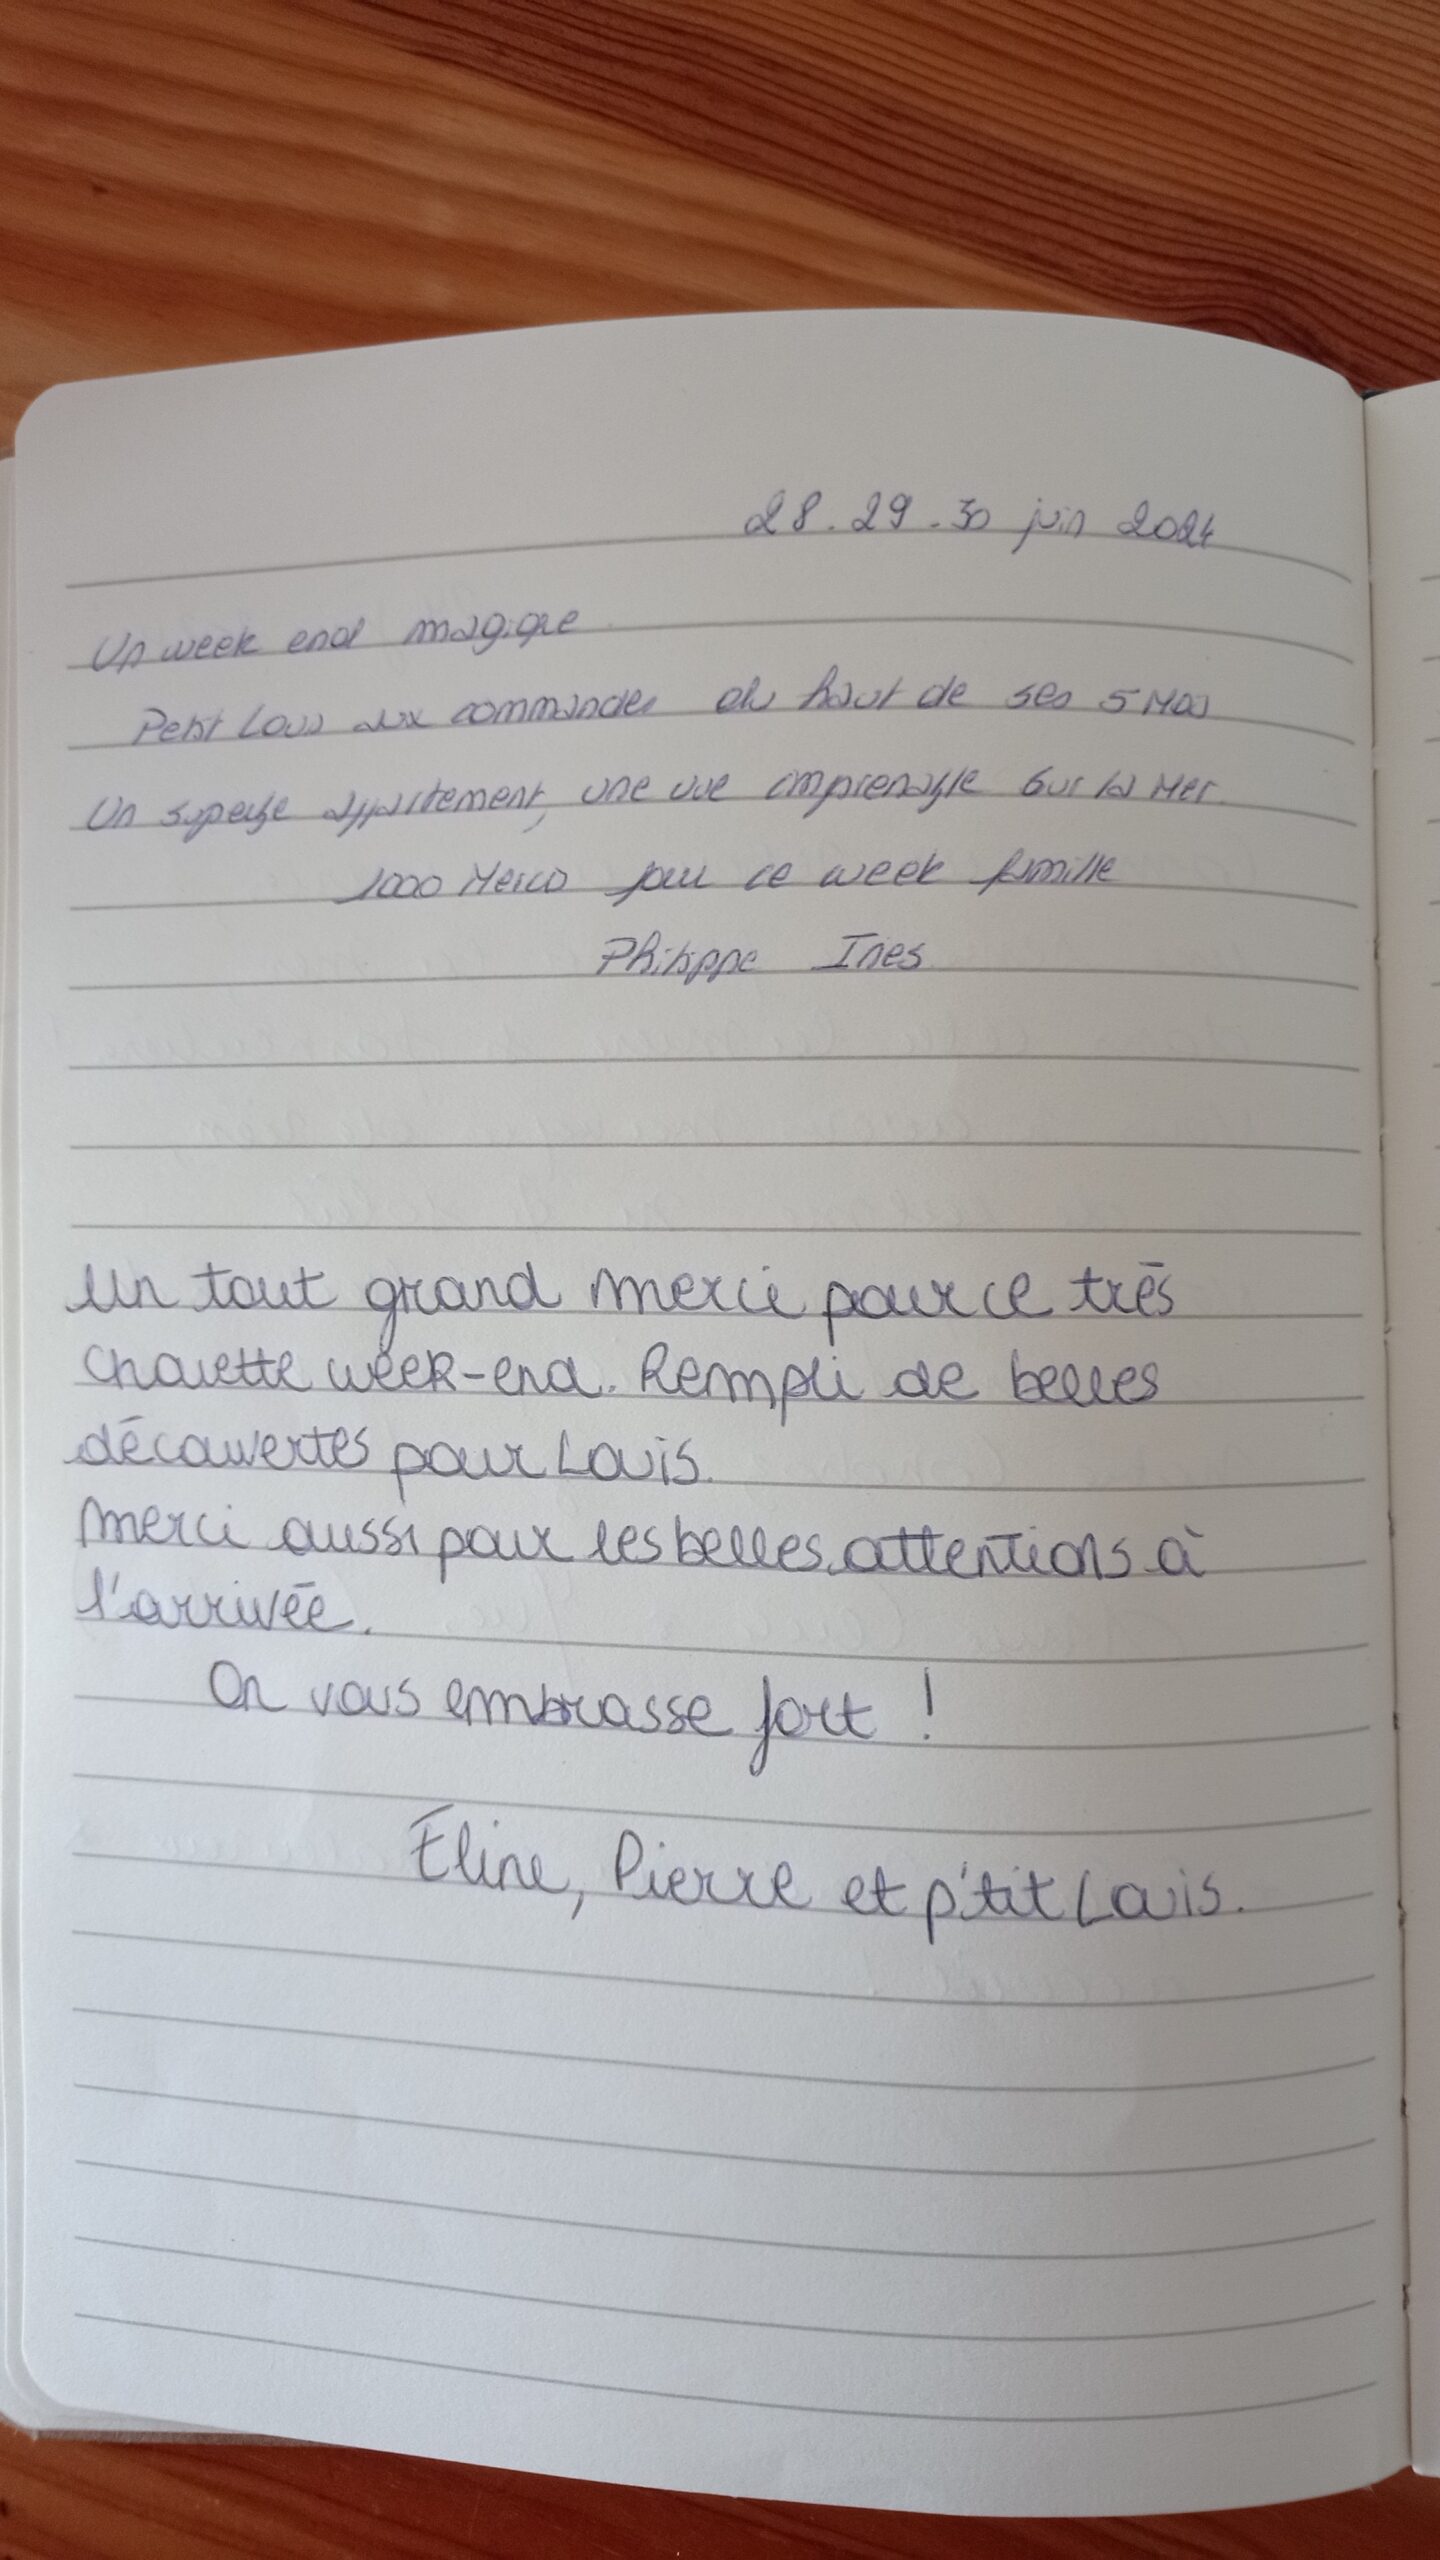 28.29.30 juin 2024
Un week end magique
Petit Louis aux commandes du haut de ses 5 Mois
Un superbe appartement, une vue imprenable sur la Mer.
1000 Mercis pour ce week famille
Philippe Ines
Un tout grand merci pour ce très
chouette week-end. Rempli de belles
découvertes pour Louis.
Merci aussi pour les belles attentions à
l'arrivée.
On vous embrasse fort !
Éline, Pierre et p'tit Louis.